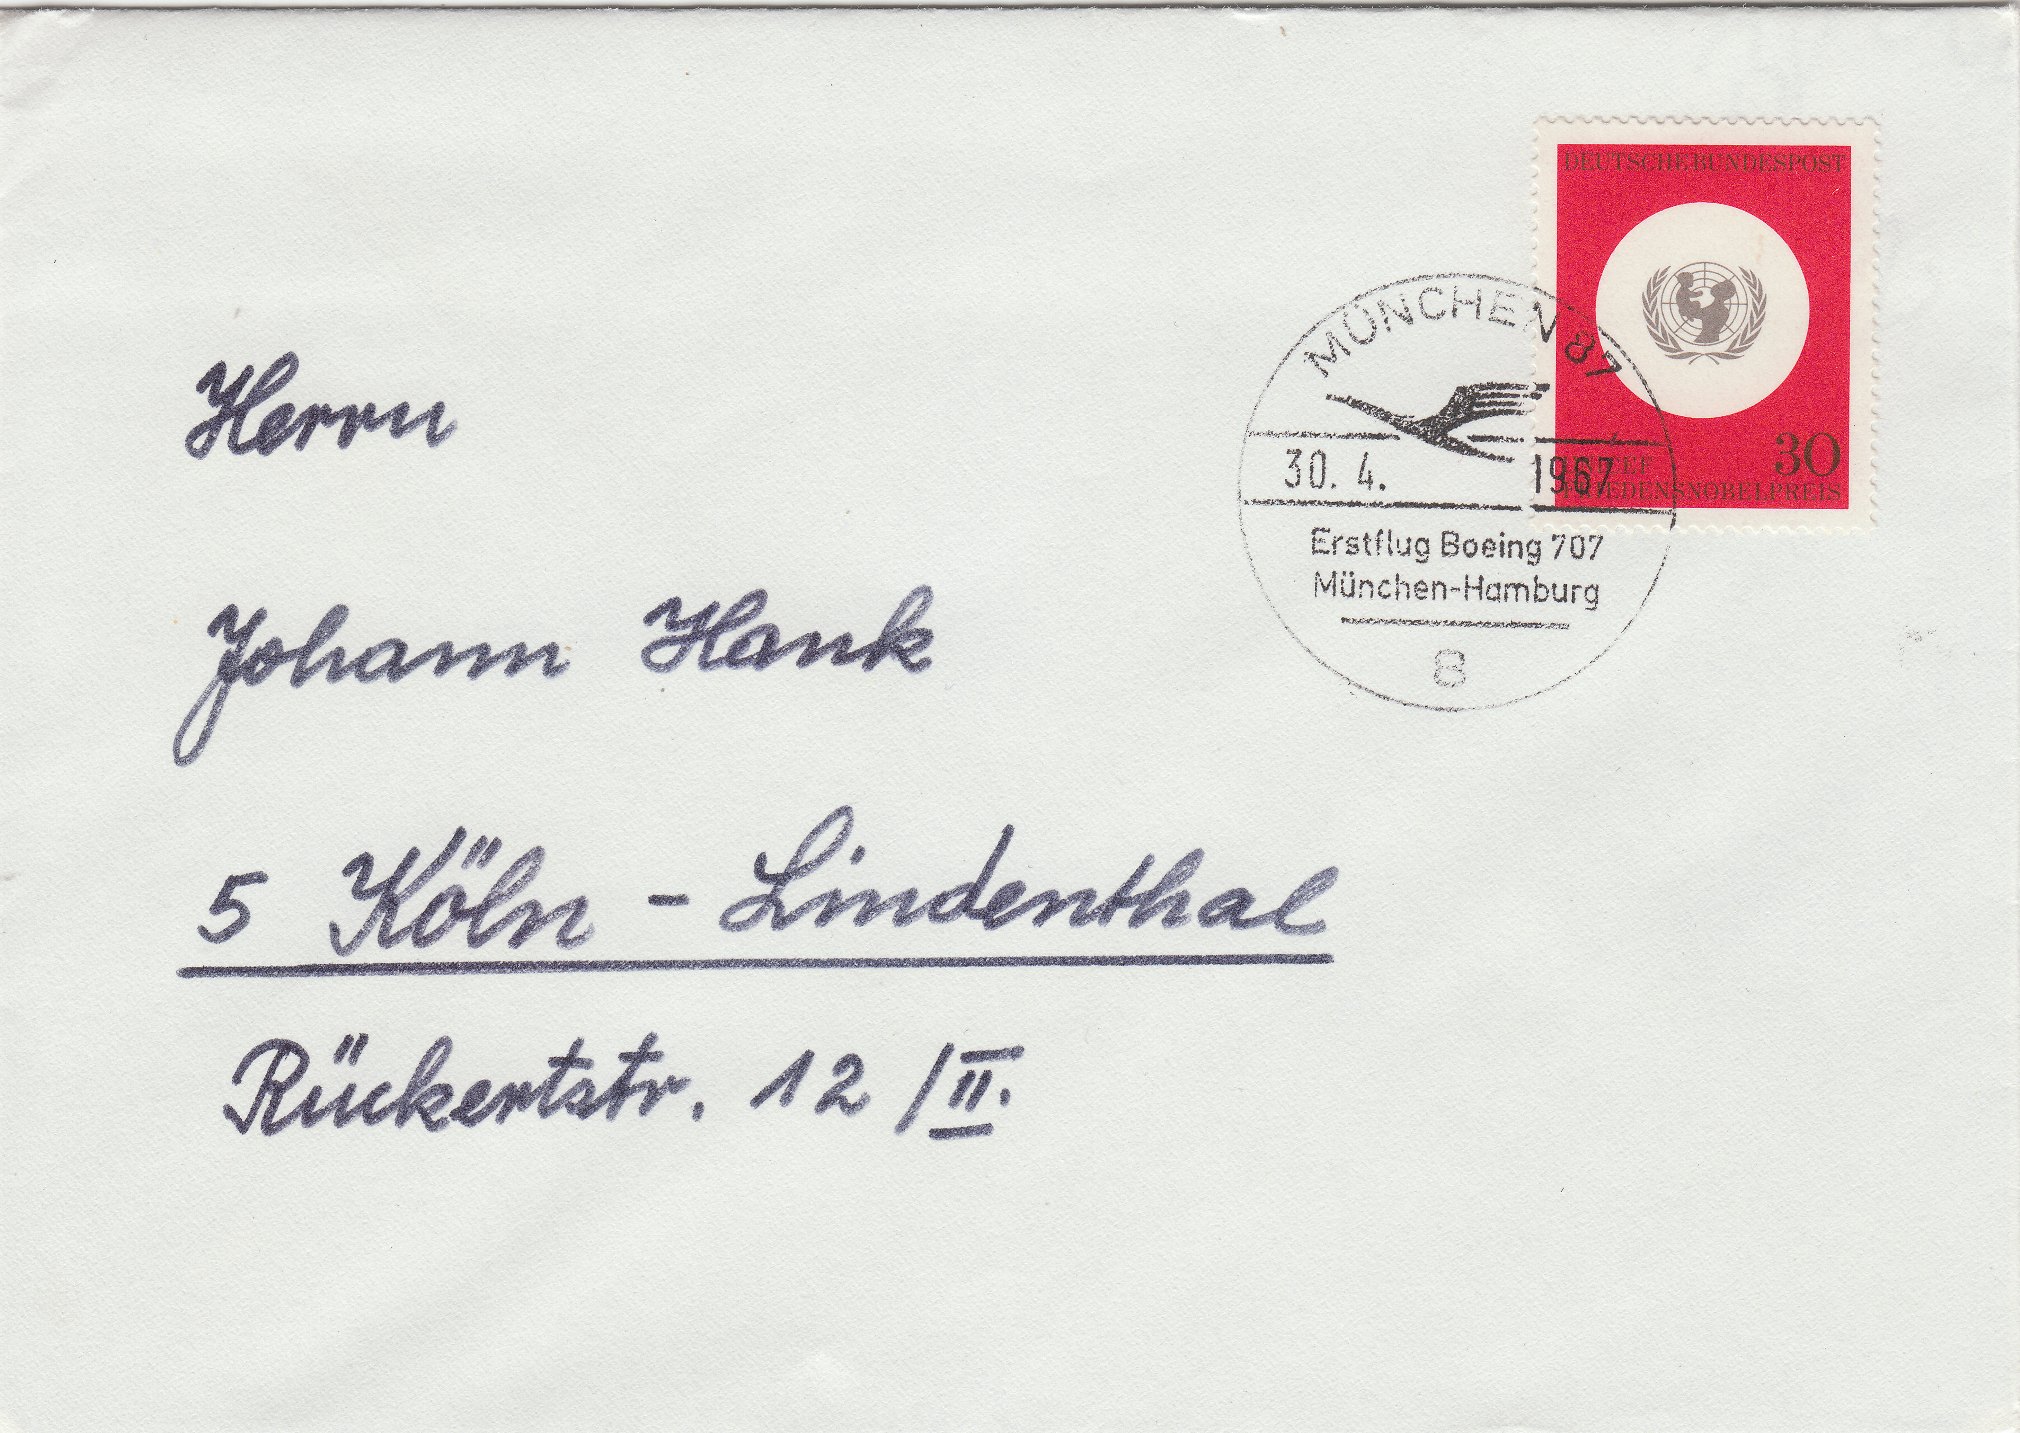 DEUTSCHE BUNDESPOST
30
FRIEDENSNOBELPREIS
MÜNCHEN 87
30. 4. 1967
Erstflug Boeing 707
München-Hamburg
8
Herrn
Johann Hank
5 Köln - Lindenthal
Rückertstr. 12 /II.